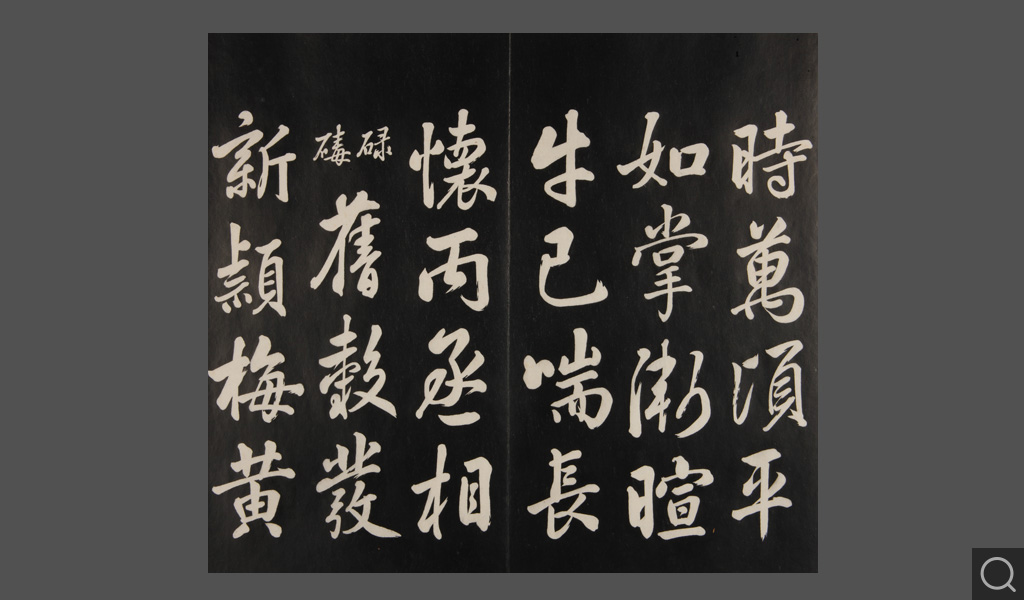 時萬頃平
如掌漸暄
牛已喘長
懷丙丞相
碌碡
舊穀發
新頴梅黄